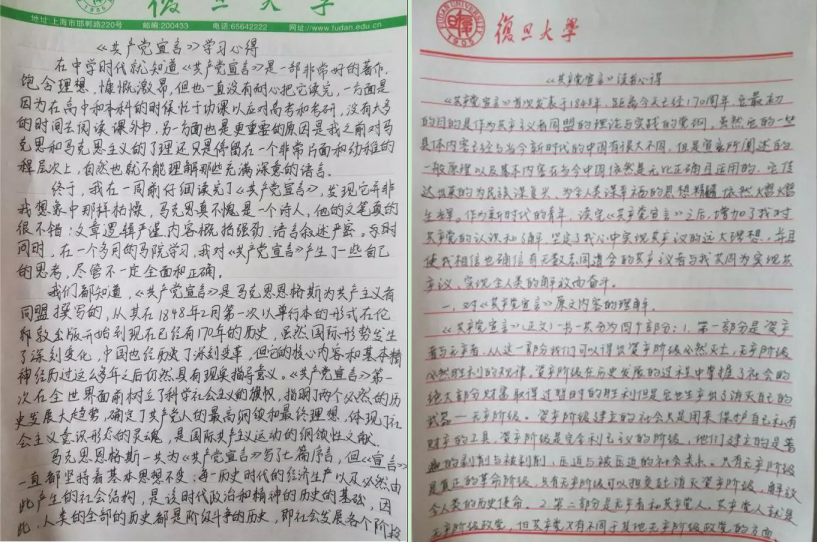 復旦大學
地址:上海市邯郸路220号 邮编:200433 电话:65642222 网址://www.fudan.edu.cn
《共产党宣言》学习心得
在中学时代就知道《共产党宣言》是一部非常好的著作,
饱含理想,慷慨激昂,但也一直没有耐心把它读完,一方面是
因为在高中和本科的时候忙于功课以应对高考和考研,没有太多
的时间去阅读课外书,另一方面也是更重要的原因是我之前对马
克思和马克思主义的了理还只是停留在一个非常片面和幼稚的
程层次上,自然也就不能理解那些充满深意的语言。
终于,我在一周前仔细读完了《共产党宣言》,发现它并非
我想象中那样枯燥,马克思真不愧是一个诗人,他的文笔真的
很不错:文章逻辑严谨,内容概括强劲,语言叙述严密。与时
同时,在一个多月的马院学习,我对《共产党宣言》产生了一些自己
的思考,尽管不一定全面和正确。
我们都知道,《共产党宣言》是马克思恩格斯为共产主义者
同盟撰写的,从其在1848年2月第一次以单行本的形式在伦
敦出版开始到现在已经有170年的历史,虽然国际形势发生
了深刻变化,中国也经历了深刻变革,但它的核心内容和基本精
神经历过这么多年之后仍然具有现实指导意义。《共产党宣言》第一
次在全世界面前树立了科学社会主义的旗帜,指明了两个必然的历
史发展大趋势,确定了共产党人的最高纲领和最终理想,体现了社
会主义意识形态的灵魂,是国际共产主义运动的纲领性文献。
马克思恩格斯一共为《共产党宣言》写了七篇序言,但《宣言》
一直都坚持着基本思想不变:每一历史时代的经济生产以及必然由
此产生的社会结构,是该时代政治和精神的历史的基础,因
此,人类的全部的历史都是阶级斗争的历史,即社会发展各个阶段
復旦大學
《共产党宣言》读书心得
《共产党宣言》首次发表于1848年,距离今天已经170周年,它最初
的目的是作为共产主义者同盟的理论与实践的党纲,虽然它的一些
具体内容已经与当今新时代的中国有很大不同,但是宣言所阐述的
一般原理以及基本内容在当今中国依然是无比正确且适用的,它传
达出来的为民族谋复兴、为全人类谋幸福的思想精髓依然
作为新时代的青年,读完《共产党宣言》之后,增加了我对
共产党的认识和了解,坚定了我心中实现共产主义的远大理想,并且
使我相信也确信有无数志同道合的共产主义者与我共同为实现共
产主义、实现全人类的解放而奋斗。
一、对《共产党宣言》原文内容的理解。
《共产党宣言》(正文)一书一共分为四个部分:1.第一部分是资产
者与无产者,从这一部分我们可以得出资产阶级必然灭亡,无产阶级
必然胜利的规律,资产阶级在历史发展的过程中掌握了社会的
绝大部分财富取得过暂时的胜利但是它也生产出了消灭自己的
武器—无产阶级。资产阶级建立的社会只是用来保护自己私有
财产的工具,资产阶级是完全利己主义的阶级,他们建立的是普
遍的剥削与被剥削、压迫与被压迫的社会关系。只有无产阶级
是真正的革命阶级,只有无产阶级可以担负起消灭资产阶级、解放
全人类的历史使命。2.第二部分是无产者和共产党人。共产党人就是
无产阶级政党,但共产党又有不同于其他无产阶级政党的方面